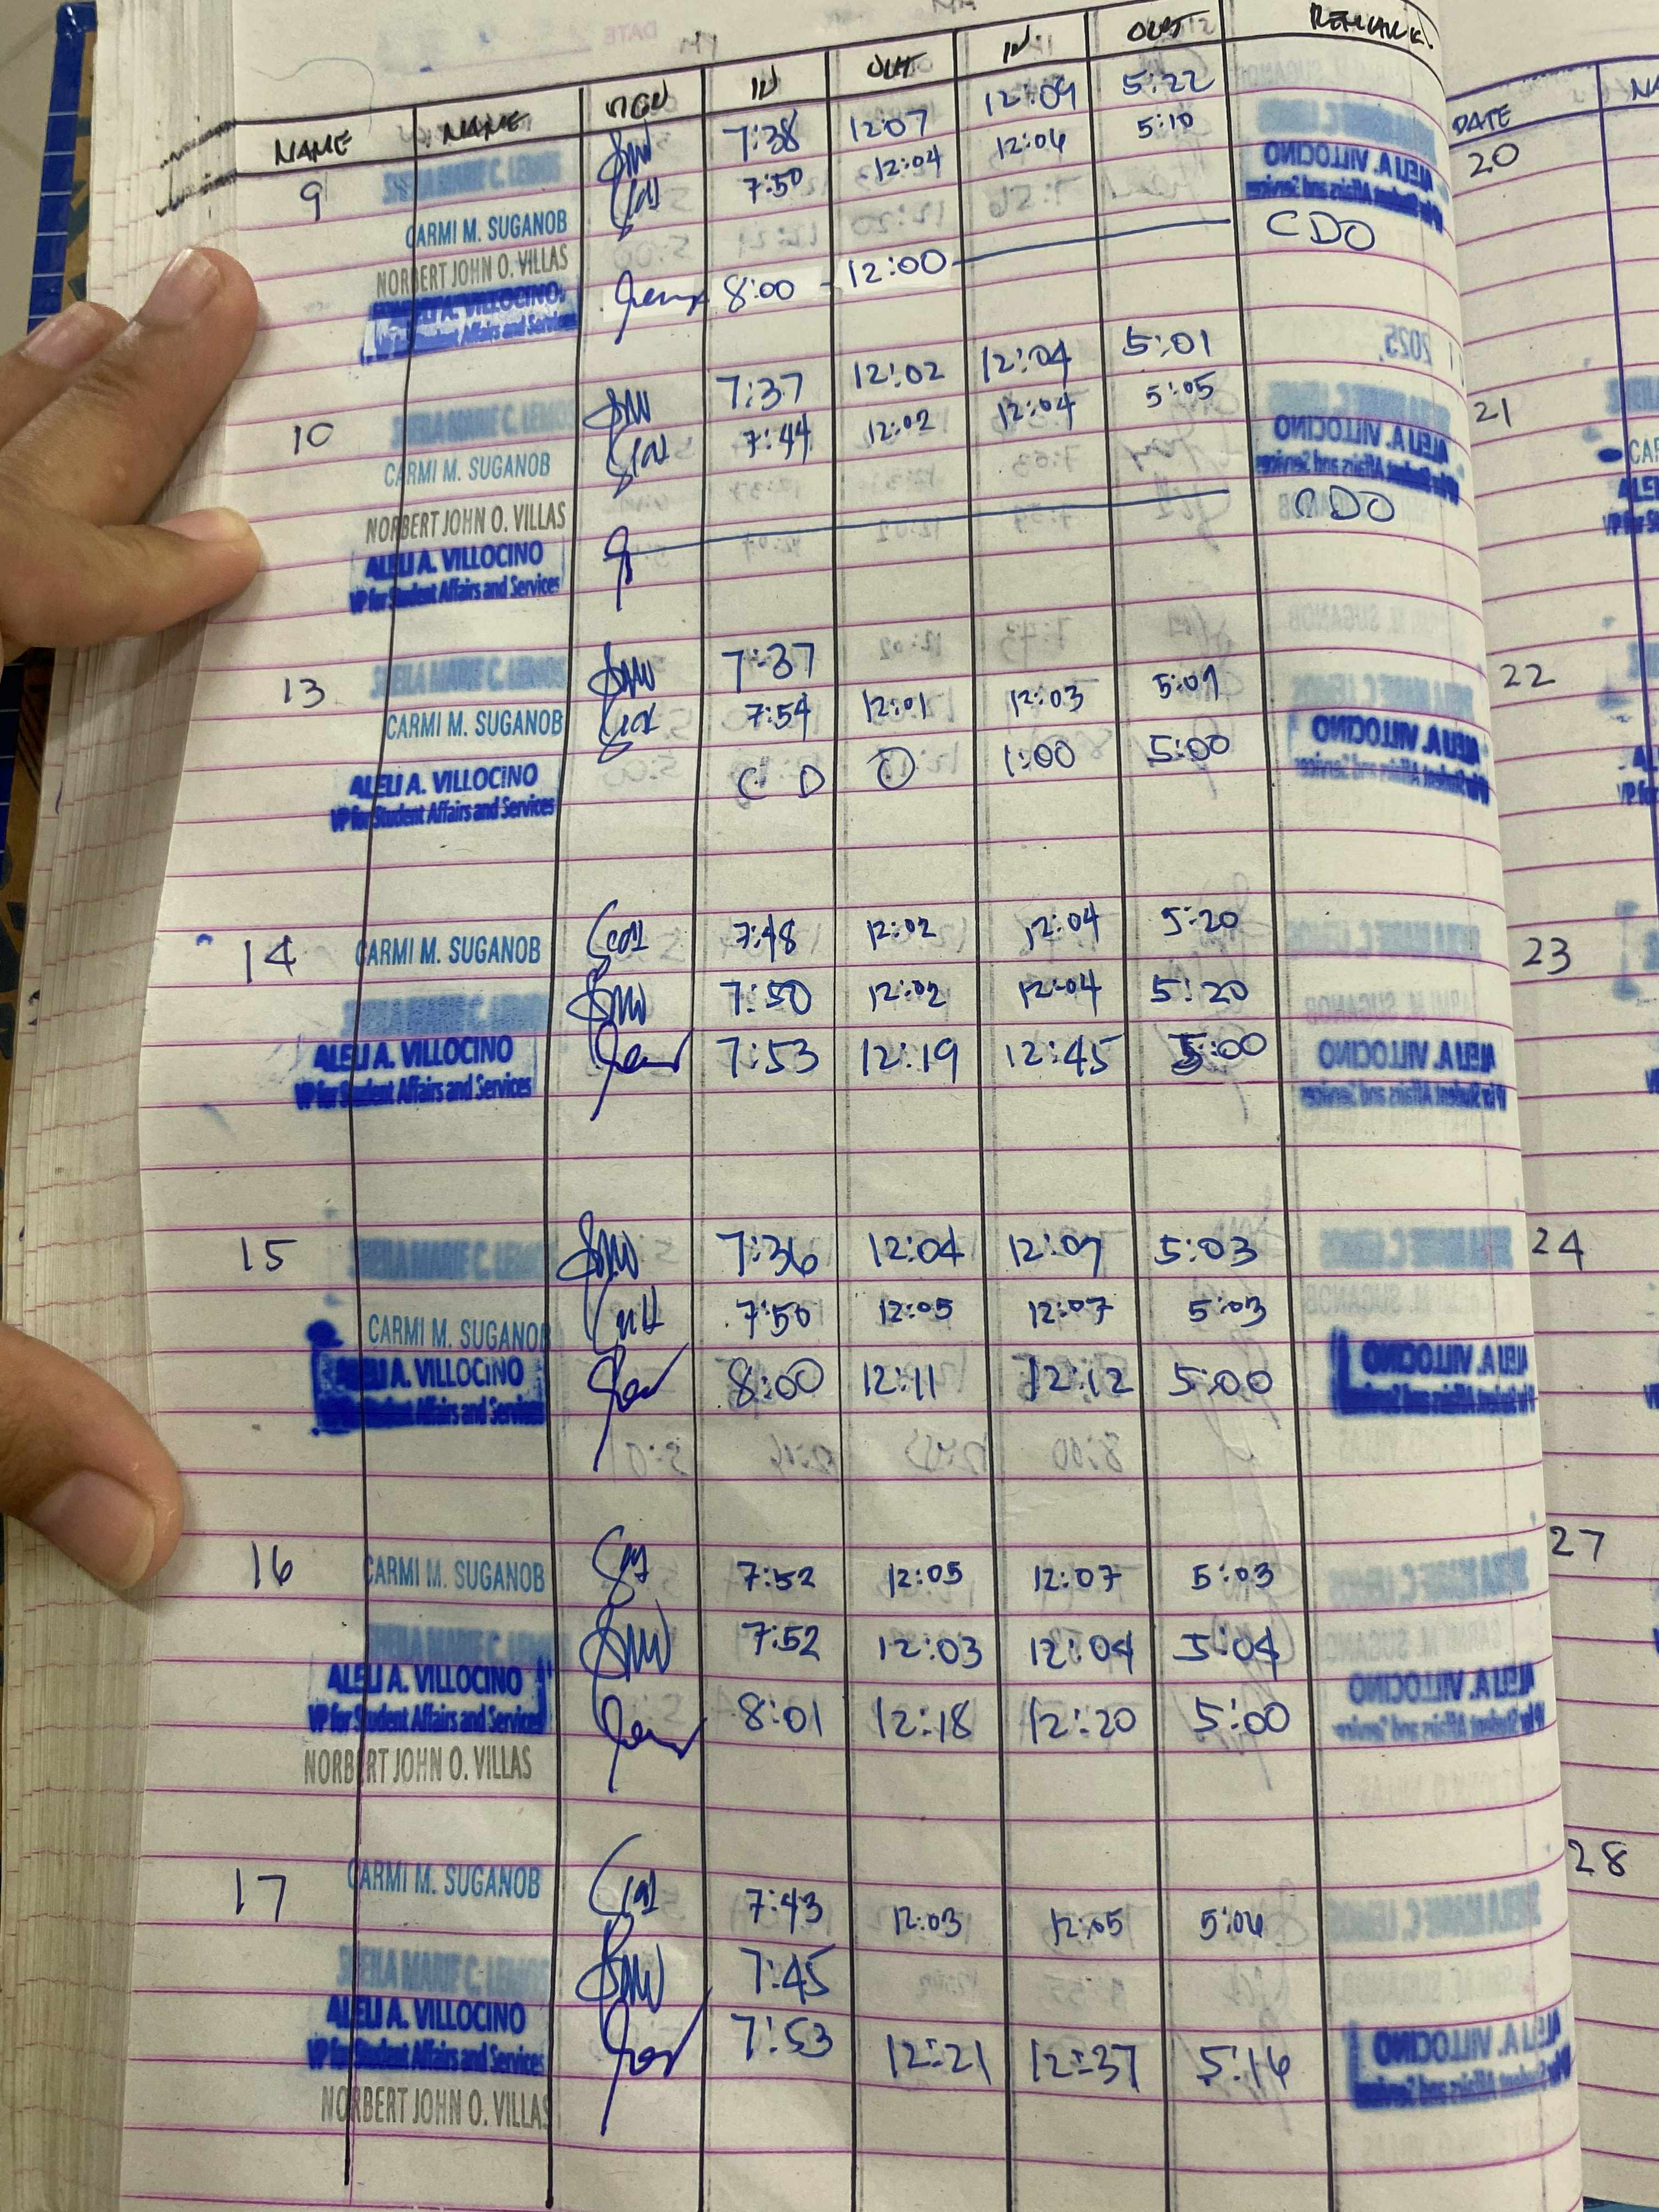 NAME NAME SIGN IN OUT IN OUT REMARK.
9 SHEILA MARIE C. LEMOS 7:38 12:07 12:09 5:22
CARMI M. SUGANOB 7:50 12:04 12:06 5:10
NORBERT JOHN O. VILLAS CDO
ALELI A. VILLOCINO 8:00 - 12:00
Affairs and Services
10 SHEILA MARIE C. LEMOS 7:37 12:02 12:04 5:01
CARMI M. SUGANOB 7:44 12:02 12:04 5:05
NORBERT JOHN O. VILLAS CDO
ALELI A. VILLOCINO
VP for Student Affairs and Services
13 SHEILA MARIE C. LEMOS 7:37
CARMI M. SUGANOB 7:54 12:01 12:03
ALELI A. VILLOCINO C D O 1:00 5:00
VP for Student Affairs and Services
14 CARMI M. SUGANOB 7:48 12:02 12:04 5:20
SHEILA MARIE C. LEMOS 7:50 12:02 12:04 5:20
ALELI A. VILLOCINO 7:53 12:19 12:45 5:00
VP for Student Affairs and Services
15 SHEILA MARIE C. LEMOS 7:36 12:04 5:03
CARMI M. SUGANOB 7:50 12:05 12:07 5:03
ALELI A. VILLOCINO 8:00 12:11 12:12 5:00
VP for Student Affairs and Services
16 CARMI M. SUGANOB 7:52 12:05 12:07 5:03
SHEILA MARIE C. LEMOS 7:52 12:03 12:04 5:04
ALELI A. VILLOCINO 8:01 12:18 12:20 5:00
VP for Student Affairs and Services
NORBERT JOHN O. VILLAS
17 CARMI M. SUGANOB 7:43 12:03 12:05 5:06
SHEILA MARIE C. LEMOS 7:45
ALELI A. VILLOCINO 7:53 12:21 12:37 5:16
VP for Student Affairs and Services
NORBERT JOHN O. VILLAS
DATE NA
20
21
CAR
22
23
24
27
28